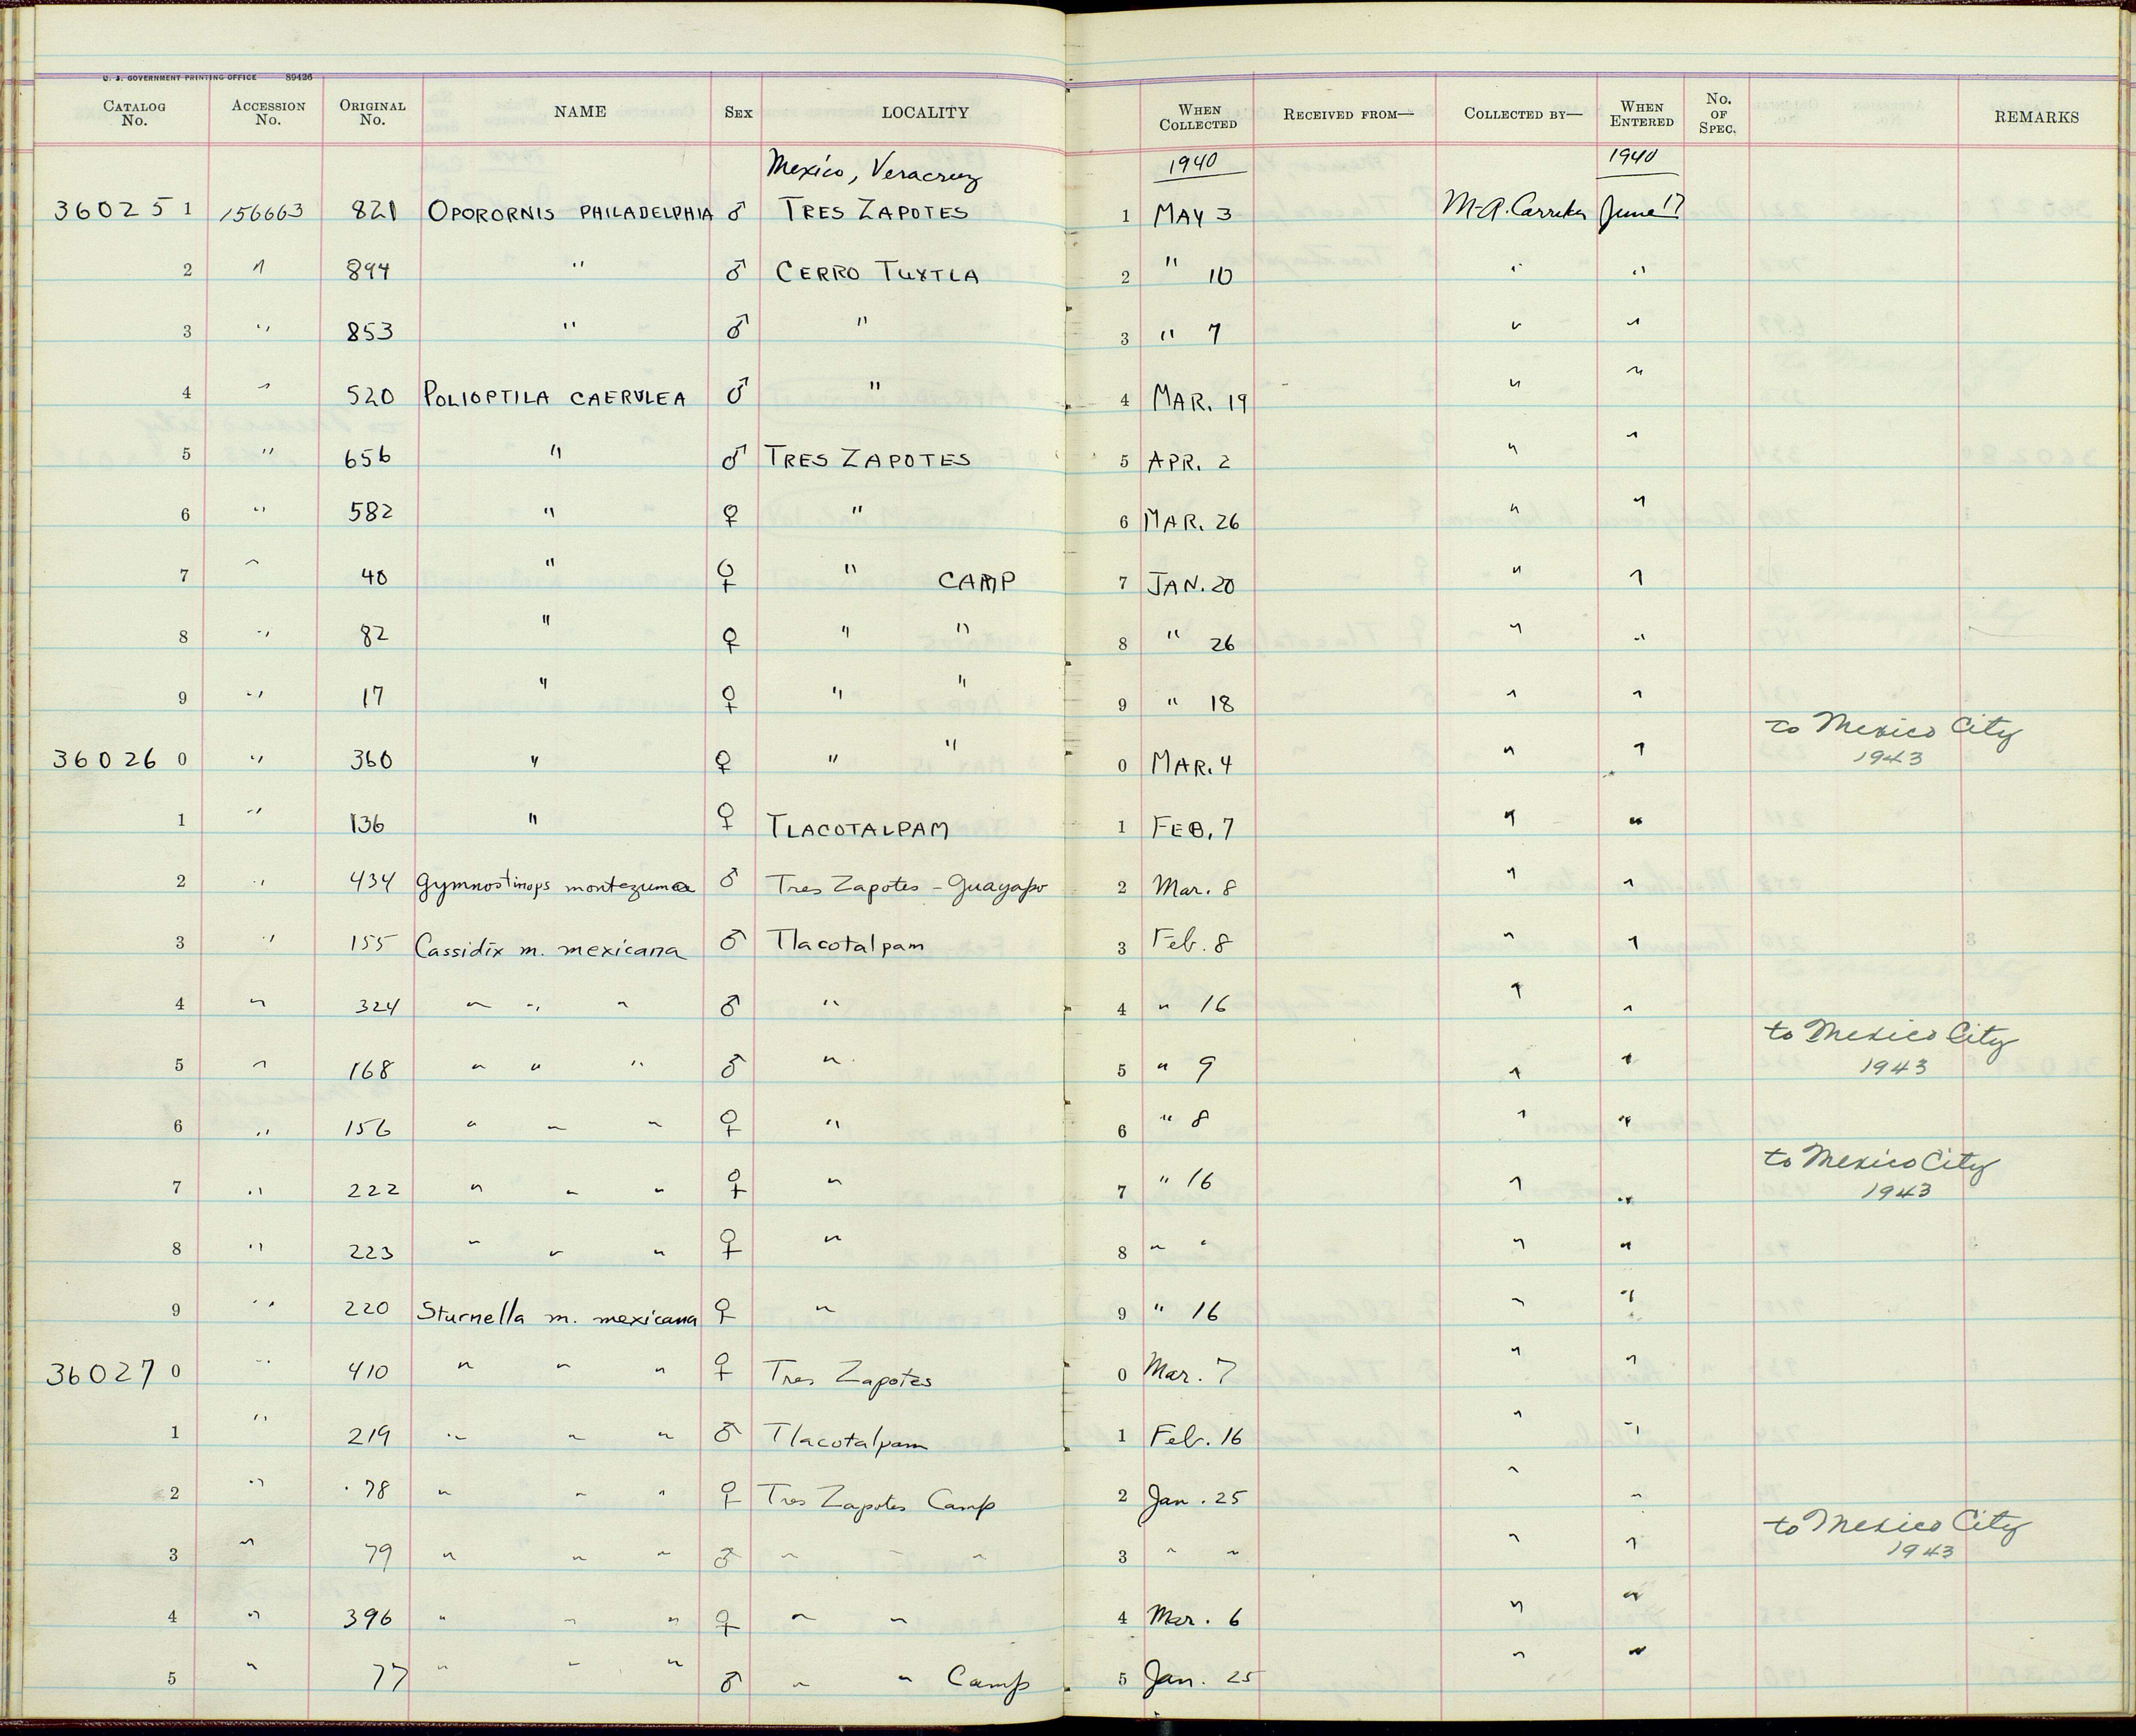 U. S. GOVERNMENT PRINTING OFFICE 89426
CATALOG No. ACCESSION No. ORIGINAL No. NAME SEX LOCALITY WHEN COLLECTED RECEIVED FROM— COLLECTED BY— WHEN ENTERED No. OF SPEC. REMARKS
Mexico, Veracruz 1940 1940
360251 156663 821 OPORORNIS PHILADELPHIA ♂ TRES ZAPOTES 1 MAY 3 M.A. Carriker June 17
2 " 894 " ♂ CERRO TUXTLA 2 " 10 " "
3 " 853 " ♂ " 3 " 7 " "
4 " 520 POLIOPTILA CAERULEA ♂ " 4 MAR. 19 " "
5 " 656 " ♂ TRES ZAPOTES 5 APR. 2 " "
6 " 582 " ♀ " 6 MAR. 26 " "
7 " 40 " ♀ " CAMP 7 JAN. 20 " "
8 " 82 " ♀ " " 8 " 26 " "
9 " 17 " ♀ " " 9 " 18 " "
360260 " 360 " ♀ " " 0 MAR. 4 " " to Mexico City 1943
1 " 136 " ♀ TLACOTALPAM 1 FEB. 7 " "
2 " 434 Gymnostinops montezumae ♂ Tres Zapotes - Guayapo 2 Mar. 8 " "
3 " 155 Cassidix m. mexicana ♂ Tlacotalpam 3 Feb. 8 " "
4 " 324 " " " ♂ " 4 " 16 " "
5 " 168 " " " ♂ " 5 " 9 " " to Mexico City 1943
6 " 156 " " " ♀ " 6 " 8 " "
7 " 222 " " " ♀ " 7 " 16 " " to Mexico City 1943
8 " 223 " " " ♀ " 8 " " " "
9 " 220 Sturnella m. mexicana ♀ " 9 " 16 " "
360270 " 410 " " " ♀ Tres Zapotes 0 Mar. 7 " "
1 " 219 " " " ♂ Tlacotalpam 1 Feb. 16 " "
2 " 78 " " " ♀ Tres Zapotes Camp 2 Jan. 25 " "
3 " 79 " " " ♂ " " " 3 " " " " to Mexico City 1943
4 " 396 " " " ♀ " " 4 Mar. 6 " "
5 " 77 " " " ♂ " " Camp 5 Jan. 25 " "